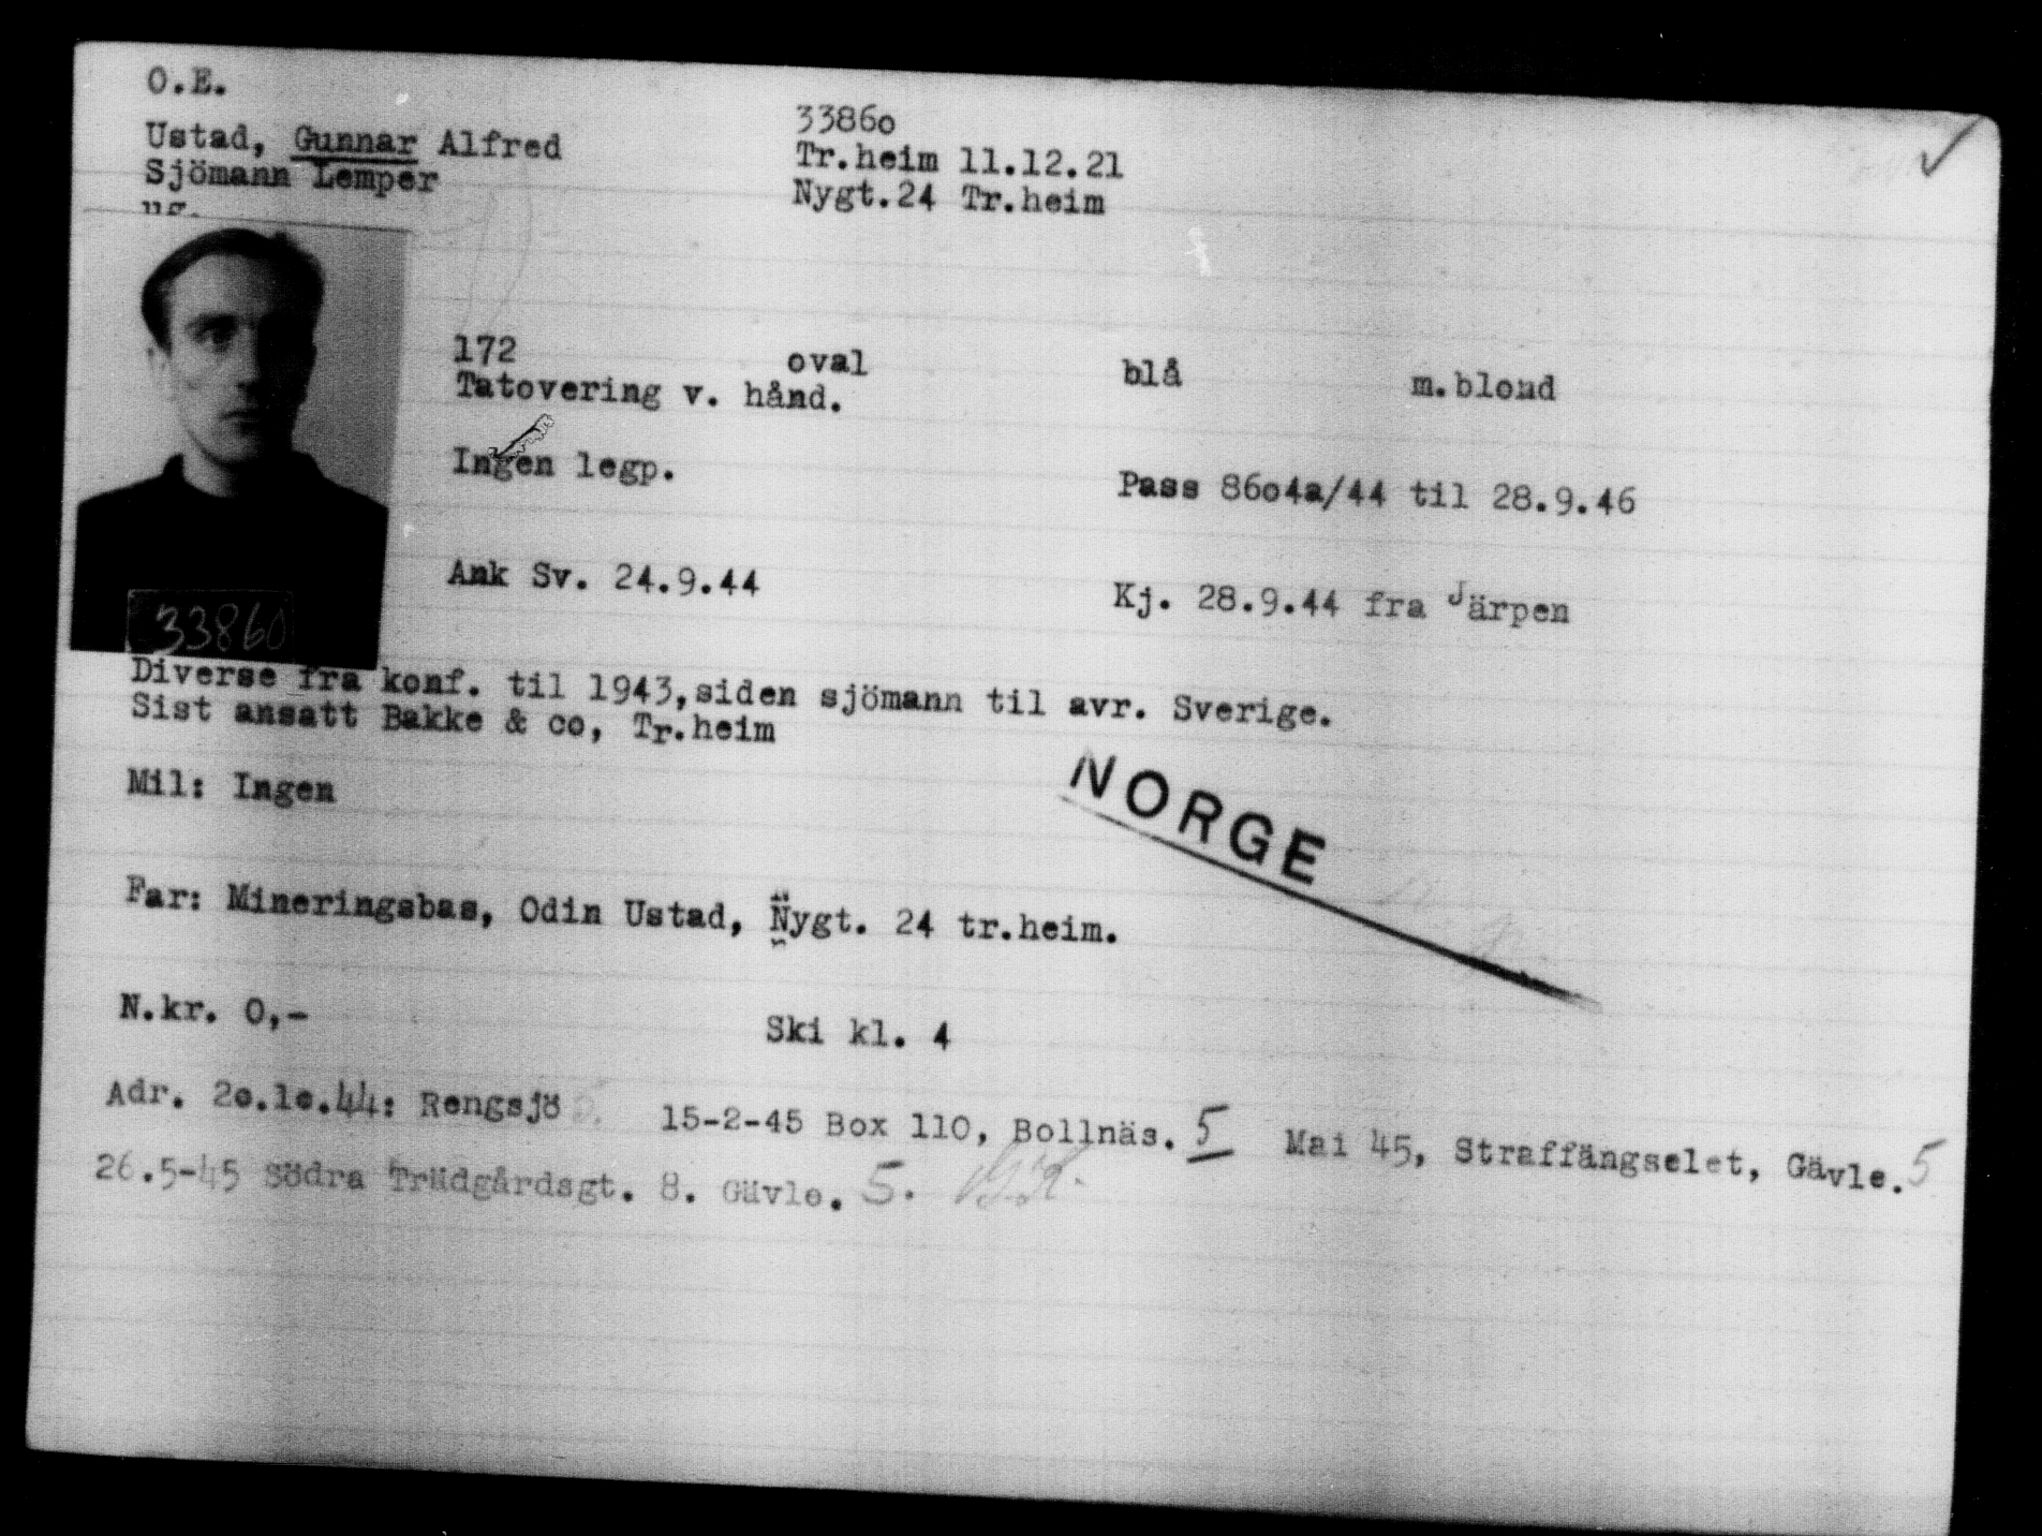 O.E.
Ustad, Gunnar Alfred
Sjömann Lemper
ug.
3386o
Tr.heim 11.12.21
Nygt.24 Tr.heim
172 oval blå m.blond
Tatovering v. hånd.
Ingen legp.
Pass 86o4a/44 til 28.9.46
Ank Sv. 24.9.44
Kj. 28.9.44 fra Järpen
33860
Diverse fra konf. til 1943,siden sjömann til avr. Sverige.
Sist ansatt Bakke & co, Tr.heim
Mil: Ingen
NORGE
Far: Mineringsbas, Odin Ustad, Nygt. 24 tr.heim.
N.kr. 0,-
Ski kl. 4
Adr. 2o.1o.44: Rengsjö 15-2-45 Box 110, Bollnäs. 5 Mai 45, Straffängselet, Gävle. 5
26.5-45 Södra Trädgårdsgt. 8. Gävle. 5.